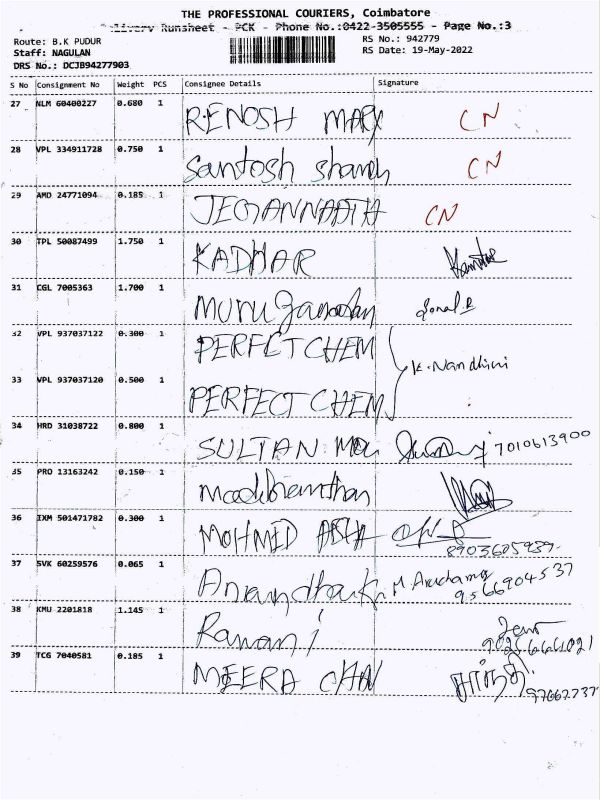 THE PROFESSIONAL COURIERS, Coimbatore
Delivery Runsheet - PCK - Phone No.:0422-3505555 - Page No.:3
Route: B.K PUDUR RS No.: 942779
Staff: NAGULAN RS Date: 19-May-2022
DRS No.: DCJB94277903
S No Consignment No Weight PCS Consignee Details Signature
27 NLM 60400227 0.680 1 RENOSH MARX CN
28 VPL 334911728 0.750 1 Santosh CN
29 AMD 24771094 0.185 1 CN
30 TPL 50087499 1.750 1 KADHAR
31 CGL 7005363 1.700 1
32 VPL 937037122 0.300 1 PERFECT CHEM
K. Nandhini
33 VPL 937037120 0.500 1 PERFECT CHEM
34 HRD 31038722 0.800 1 SULTAN 7010613900
35 PRO 13163242 0.150 1
36 IXM 501471782 0.300 1 MOHMID
37 SVK 60259576 0.065 1 9566904537
38 KMU 2201818 1.145 1 Ramani
39 TCG 7040581 0.185 1 MEERA